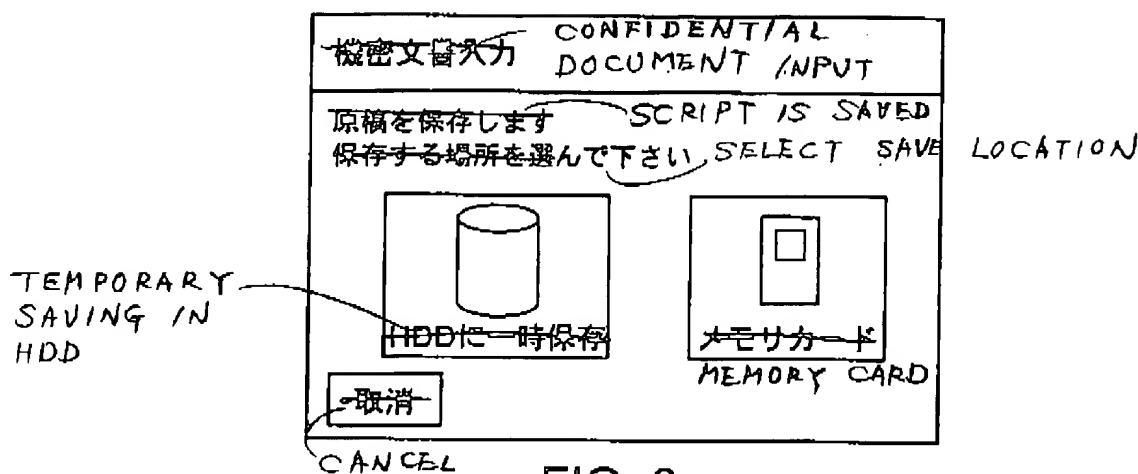 機密文書入力
CONFIDENTIAL
DOCUMENT INPUT
原稿を保存します
SCRIPT IS SAVED
保存する場所を選んで下さい
SELECT SAVE LOCATION
TEMPORARY
SAVING IN
HDD
HDDに一時保存
メモリカード
MEMORY CARD
取消
CANCEL